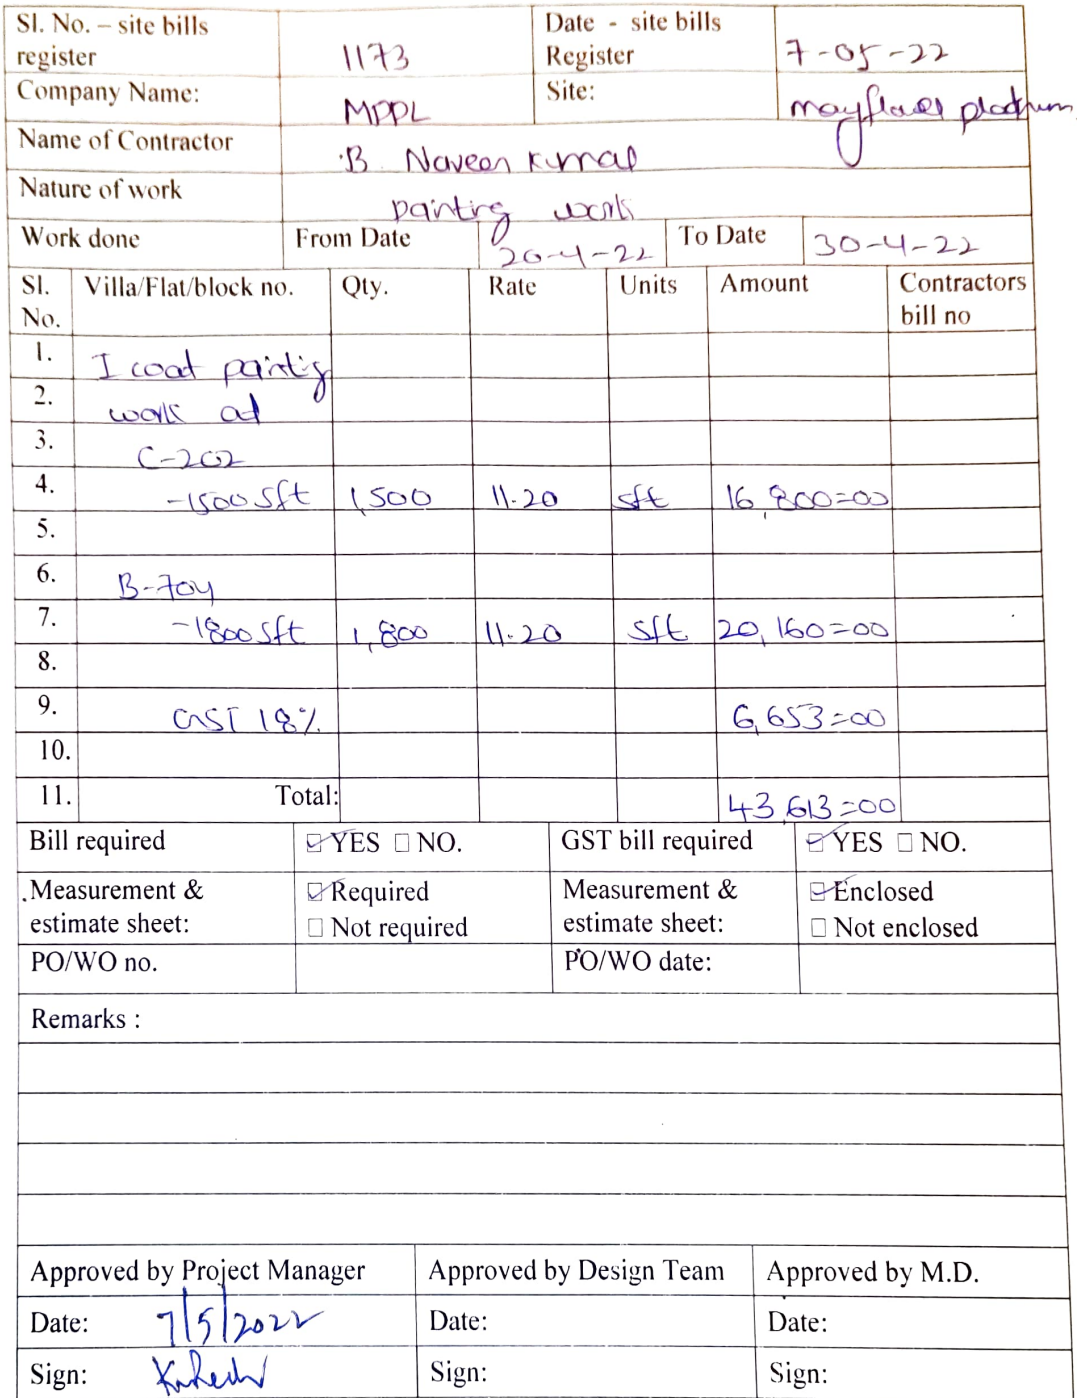 Sl. No. – site bills register 1173 Date - site bills Register 7-05-22
Company Name: MPPL Site: mayflower platinum
Name of Contractor B. Naveen kumar
Nature of work painting work
Work done From Date 20-4-22 To Date 30-4-22
Sl. No. Villa/Flat/block no. Qty. Rate Units Amount Contractors bill no
1. I coat painting
2. work at
3. C-202
4. -1500 sft 1,500 11.20 sft 16,800=00
5.
6. B-704
7. -1800 sft 1,800 11.20 sft 20,160=00
8.
9. GST 18% 6,653=00
10.
11. Total: 43,613=00
Bill required ☑ YES ☐ NO. GST bill required ☑ YES ☐ NO.
Measurement & estimate sheet: ☑ Required ☐ Not required Measurement & estimate sheet: ☑ Enclosed ☐ Not enclosed
PO/WO no. PO/WO date:
Remarks :
Approved by Project Manager Approved by Design Team Approved by M.D.
Date: 7/5/2022 Date: Date:
Sign: Sign: Sign: